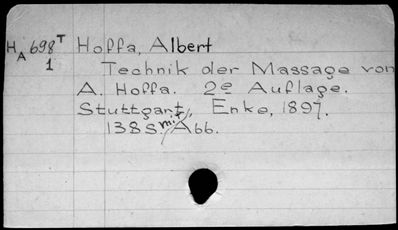 HA 698T Hoffa, Albert
1 Technik der Massage von
A. Hoffa. 2e Auflage.
Stuttgart, Enke, 1897.
138 S. mit Abb.